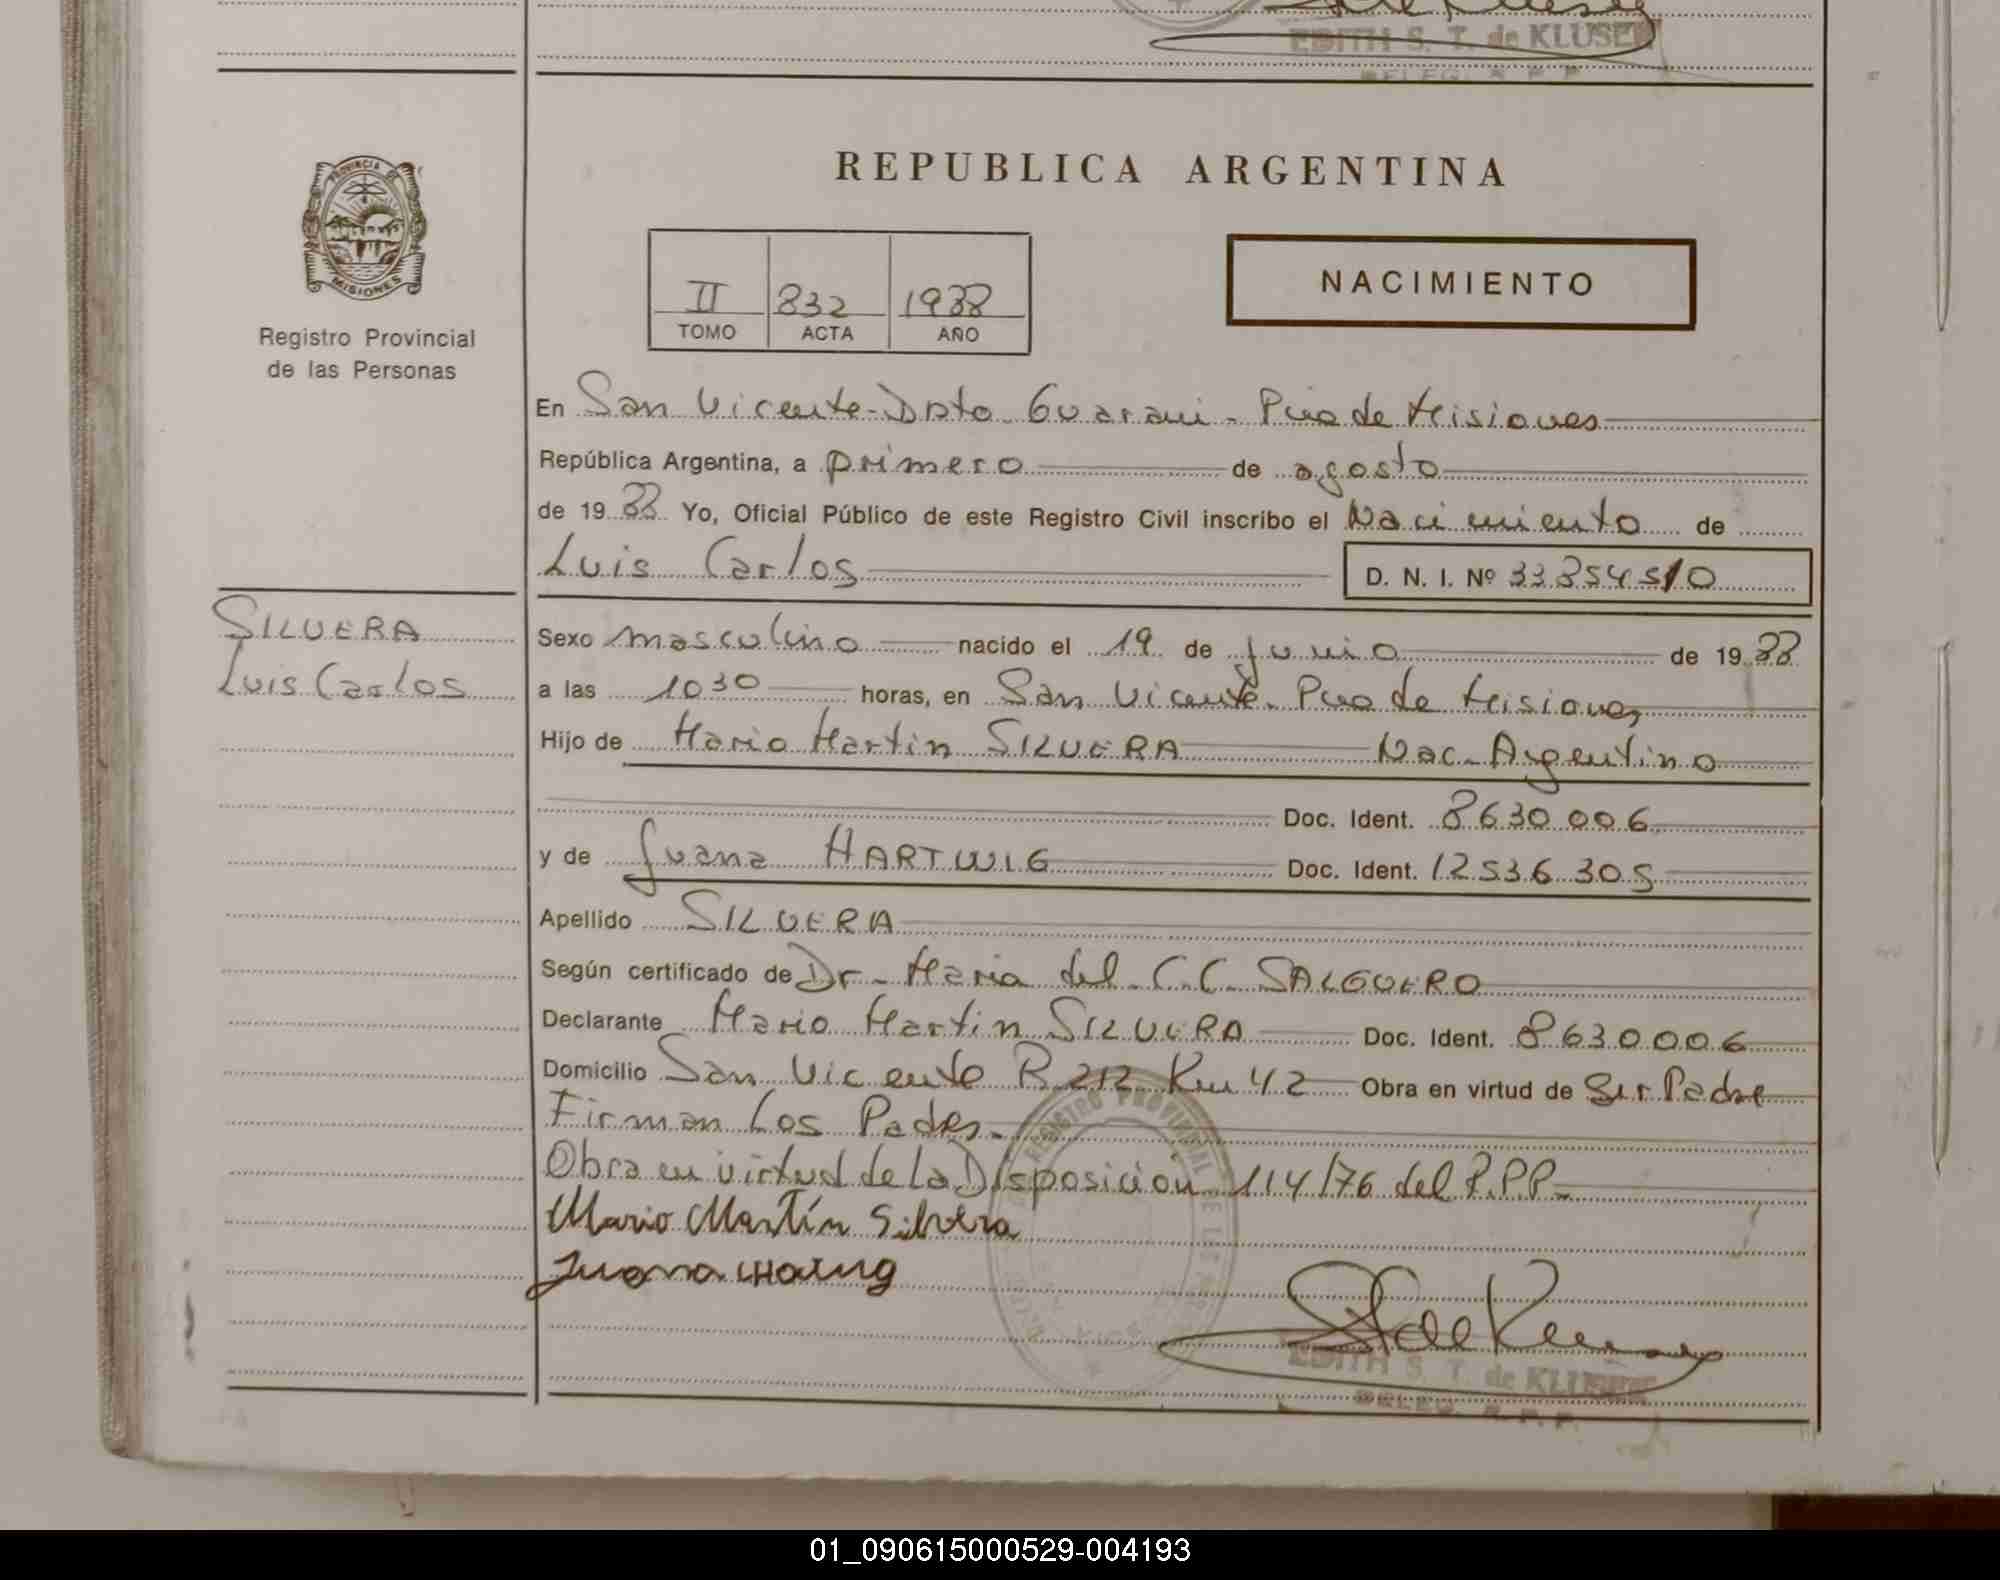 EDITH S. T. de KLUSENER
DELEG. R. P. P.
REPUBLICA ARGENTINA
PROVINCIA DE
MISIONES
Registro Provincial
de las Personas
II 832 1988
TOMO ACTA AÑO
NACIMIENTO
En San Vicente - Dpto. Guarani - Pcia de Misiones
República Argentina, a primero de agosto
de 19 88 Yo, Oficial Público de este Registro Civil inscribo el Nacimiento de
Luis Carlos D. N. I. Nº 33.854510
SILVERA
Luis Carlos
Sexo masculino nacido el 19 de junio de 19 88
a las 10 30 horas, en San Vicente. Pcia de Misiones
Hijo de Mario Martin SILVERA Nac. Argentino
Doc. Ident. 8630006
y de Juana HARTWIG Doc. Ident. 12536305
Apellido SILVERA
Según certificado de Dr. Maria del C. C. SALGUERO
Declarante Mario Martin SILVERA Doc. Ident. 8630006
Domicilio San Vicente R 212 Km 42 Obra en virtud de Ser Padre
Firman Los Padres.
Obra en virtud de la Disposición 114/76 del R.P.P.
Mario Martín Silvera
Juana
REGISTRO PROVINCIAL DE LAS
EDITH S. T. de KLUSENER
DELEG. R. P. P.
01_090615000529-004193